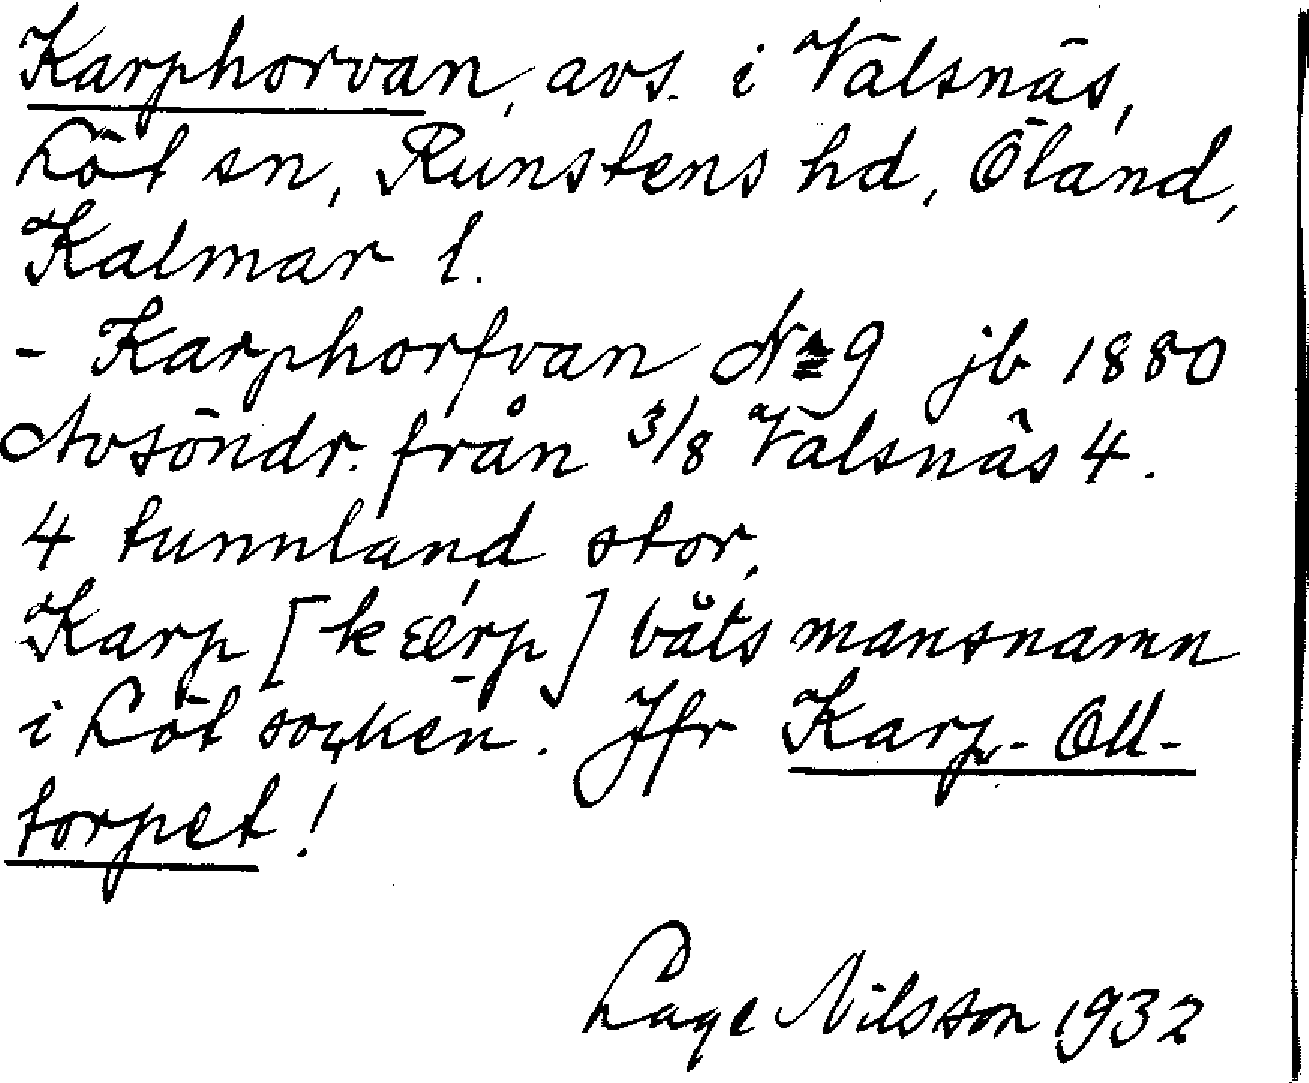 Karphorvan, avs. i Valsnäs,
Löt sn, Runstens hd, Öland,
Kalmar l.
- Karphorfvan N:o 9 jb 1880
Avsöndr. från 3/8 Valsnäs 4.
4 tunnland stor.
Karp [kærp] båtsmansnamn
i Löt socken. Jfr Karp-Oll-
torpet!
Lage Nilsson 1932